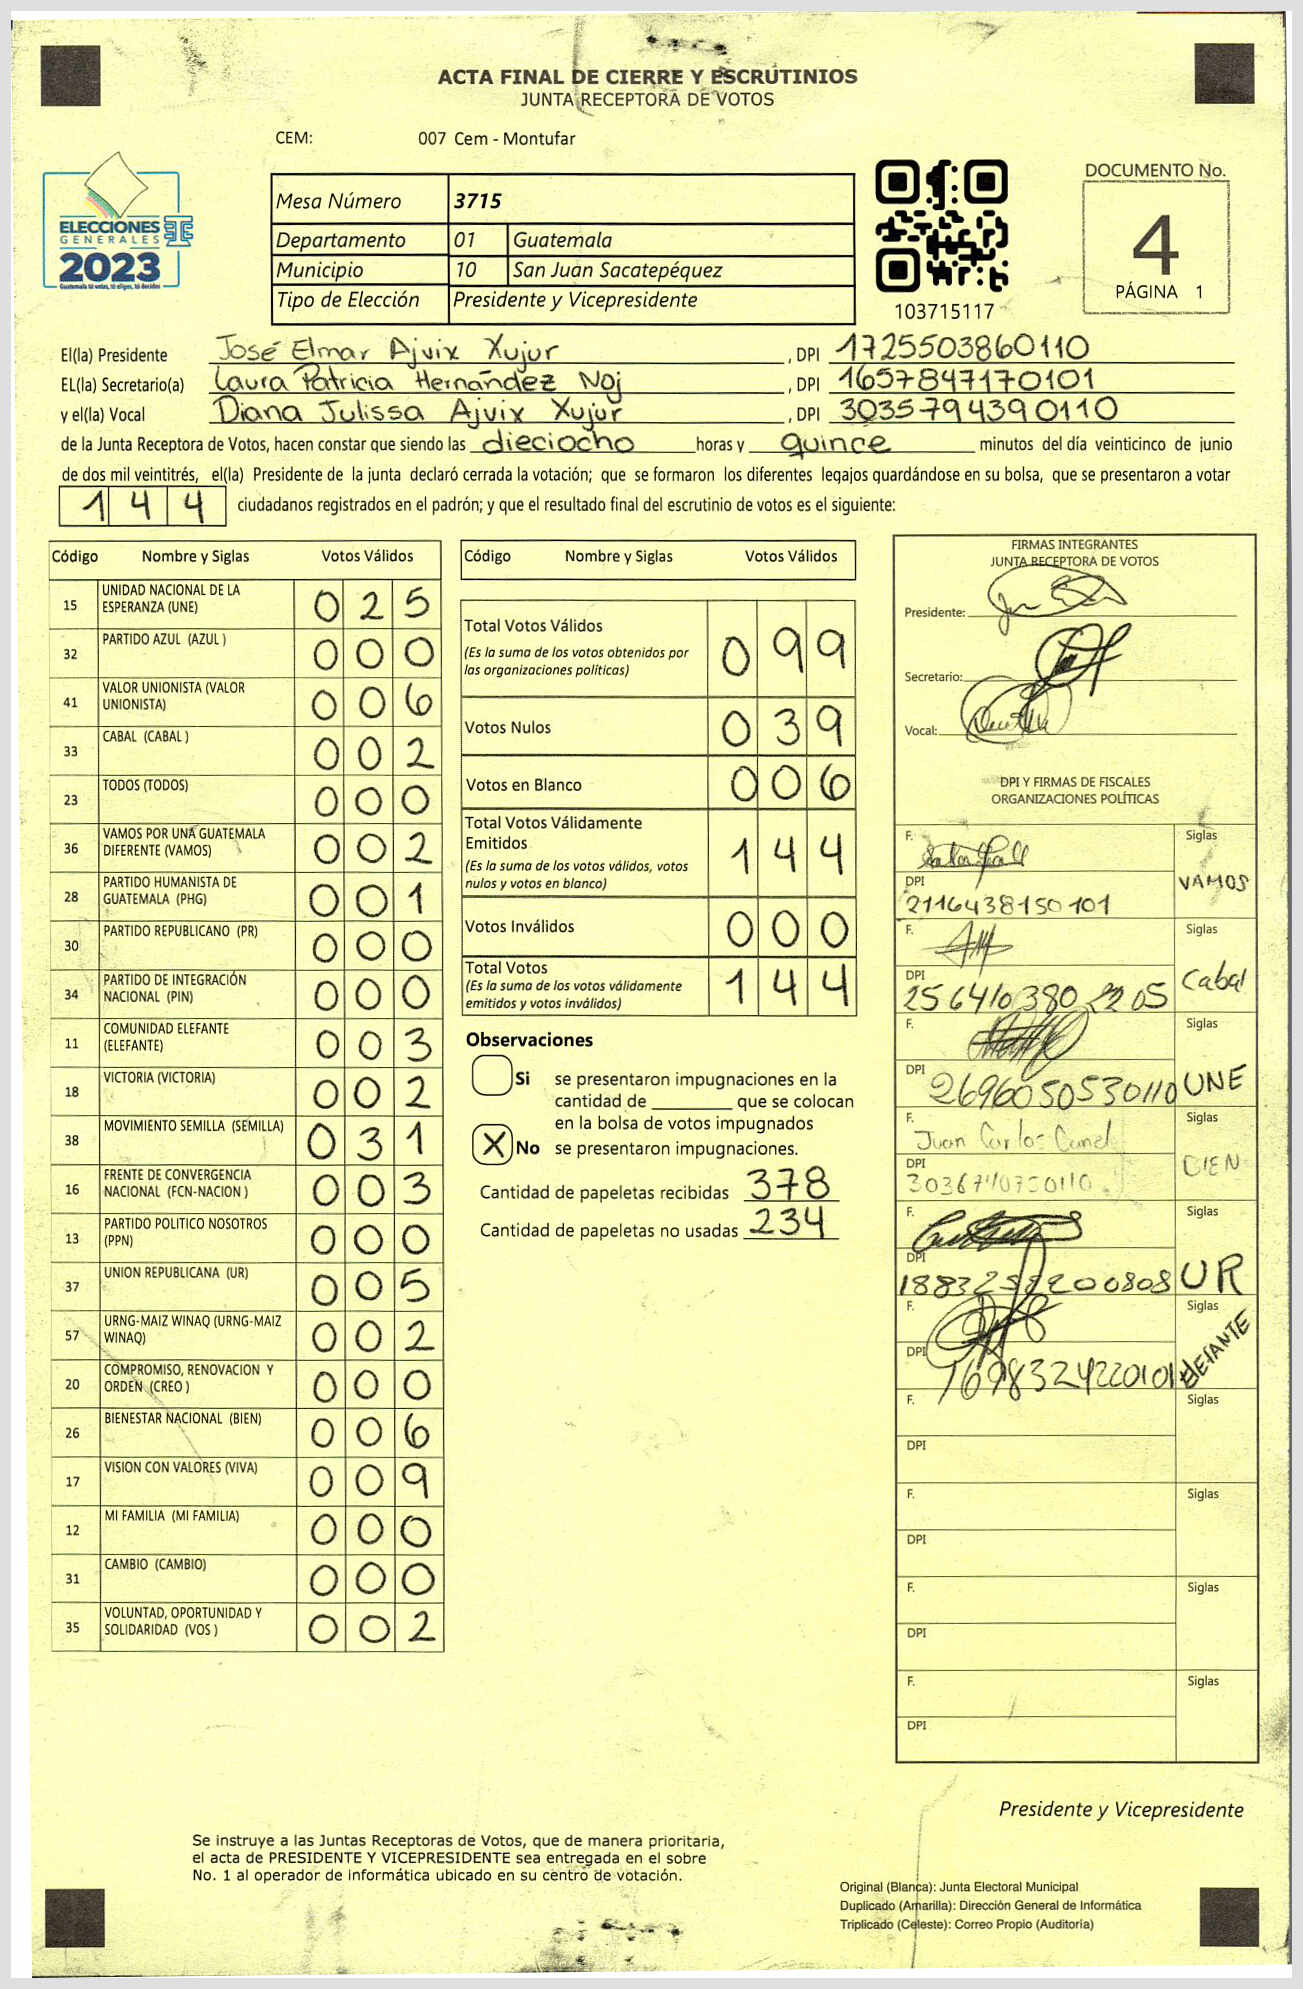 ACTA FINAL DE CIERRE Y ESCRUTINIOS
JUNTA RECEPTORA DE VOTOS
CEM: 007 Cem - Montufar
ELECCIONES
GENERALES
2023
Guatemala tú votas, tú eliges, tú decides
Mesa Número 3715
Departamento 01 Guatemala
Municipio 10 San Juan Sacatepéquez
Tipo de Elección Presidente y Vicepresidente
103715117
DOCUMENTO No.
4
PÁGINA 1
El(la) Presidente José Elmar Ajvix Xujur , DPI 1725503860110
EL(la) Secretario(a) Laura Patricia Hernández Noj , DPI 1657847170101
y el(la) Vocal Diana Julissa Ajvix Xujur , DPI 3035794390110
de la Junta Receptora de Votos, hacen constar que siendo las dieciocho horas y quince minutos del día veinticinco de junio
de dos mil veintitrés, el(la) Presidente de la junta declaró cerrada la votación; que se formaron los diferentes legajos guardándose en su bolsa, que se presentaron a votar
144 ciudadanos registrados en el padrón; y que el resultado final del escrutinio de votos es el siguiente:
Código Nombre y Siglas Votos Válidos
15 UNIDAD NACIONAL DE LA ESPERANZA (UNE) 025
32 PARTIDO AZUL (AZUL ) 000
41 VALOR UNIONISTA (VALOR UNIONISTA) 006
33 CABAL (CABAL ) 002
23 TODOS (TODOS) 000
36 VAMOS POR UNA GUATEMALA DIFERENTE (VAMOS) 002
28 PARTIDO HUMANISTA DE GUATEMALA (PHG) 001
30 PARTIDO REPUBLICANO (PR) 000
34 PARTIDO DE INTEGRACIÓN NACIONAL (PIN) 000
11 COMUNIDAD ELEFANTE (ELEFANTE) 003
18 VICTORIA (VICTORIA) 002
38 MOVIMIENTO SEMILLA (SEMILLA) 031
16 FRENTE DE CONVERGENCIA NACIONAL (FCN-NACION ) 003
13 PARTIDO POLITICO NOSOTROS (PPN) 000
37 UNION REPUBLICANA (UR) 005
57 URNG-MAIZ WINAQ (URNG-MAIZ WINAQ) 002
20 COMPROMISO, RENOVACION Y ORDEN (CREO ) 000
26 BIENESTAR NACIONAL (BIEN) 006
17 VISION CON VALORES (VIVA) 009
12 MI FAMILIA (MI FAMILIA) 000
31 CAMBIO (CAMBIO) 000
35 VOLUNTAD, OPORTUNIDAD Y SOLIDARIDAD (VOS ) 002
Código Nombre y Siglas Votos Válidos
Total Votos Válidos 099
(Es la suma de los votos obtenidos por
las organizaciones políticas)
Votos Nulos 039
Votos en Blanco 006
Total Votos Válidamente
Emitidos 144
(Es la suma de los votos válidos, votos
nulos y votos en blanco)
Votos Inválidos 000
Total Votos 144
(Es la suma de los votos válidamente
emitidos y votos inválidos)
Observaciones
Si se presentaron impugnaciones en la
cantidad de ________ que se colocan
en la bolsa de votos impugnados
X No se presentaron impugnaciones.
Cantidad de papeletas recibidas 378
Cantidad de papeletas no usadas 234
FIRMAS INTEGRANTES
JUNTA RECEPTORA DE VOTOS
Presidente:
Secretario:
Vocal:
DPI Y FIRMAS DE FISCALES
ORGANIZACIONES POLÍTICAS
F. Siglas
DPI VAMOS
2116438150101
F. Siglas
DPI Cabal
256410380 2205
F. Siglas
DPI 2696050530110 UNE
F. Juan Carlos Siglas
DPI BIEN
3036740750110
F. Siglas
DPI UR
F. Siglas
DPI 1698324220101 elefante
F. Siglas
DPI
F. Siglas
DPI
F. Siglas
DPI
F. Siglas
DPI
Presidente y Vicepresidente
Se instruye a las Juntas Receptoras de Votos, que de manera prioritaria,
el acta de PRESIDENTE Y VICEPRESIDENTE sea entregada en el sobre
No. 1 al operador de informática ubicado en su centro de votación.
Original (Blanca): Junta Electoral Municipal
Duplicado (Amarilla): Dirección General de Informática
Triplicado (Celeste): Correo Propio (Auditoría)